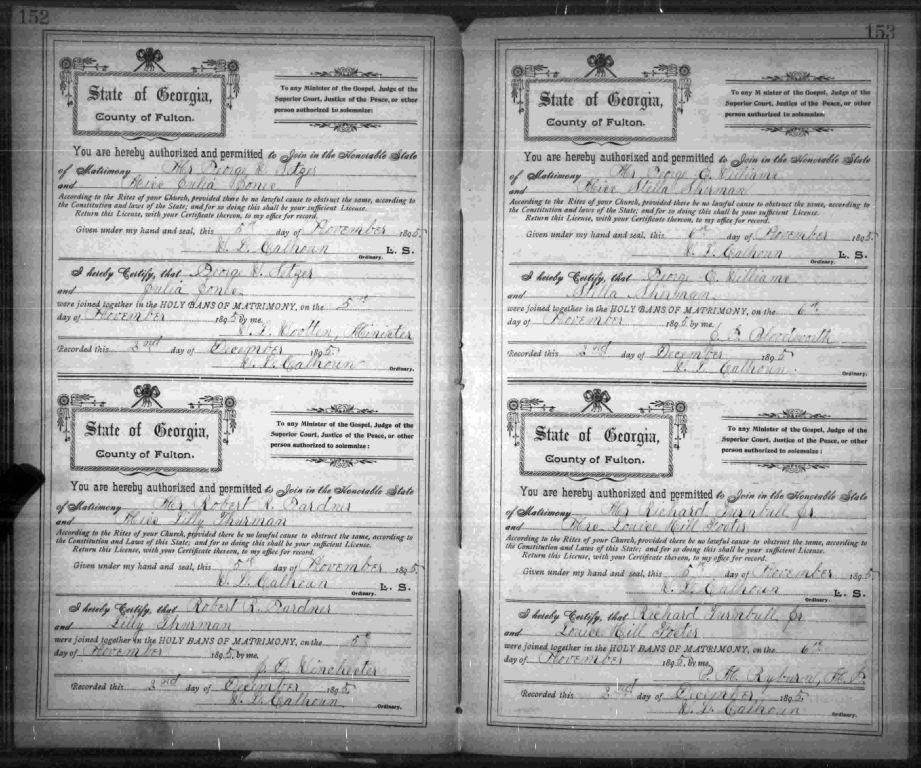 152
State of Georgia,
County of Fulton.
To any Minister of the Gospel, Judge of the
Superior Court, Justice of the Peace, or other
person authorized to solemnize:
You are hereby authorized and permitted to Join in the Honorable State
of Matrimony Mr George
and Miss Eulia
According to the Rites of your Church, provided there be no lawful cause to obstruct the same, according to
the Constitution and laws of the State; and for so doing this shall be your sufficient License.
Return this License, with your Certificate thereon, to my office for record.
Given under my hand and seal, this 5th day of November 1895
W. L. Calhoun L. S.
Ordinary.
I hereby Certify, that George
and Eulia
were joined together in the HOLY BANS OF MATRIMONY, on the 5th
day of November 1895 by me,
Wootten, Minister
Recorded this 2nd day of December 1895
W. L. Calhoun
Ordinary.
State of Georgia,
County of Fulton.
To any Minister of the Gospel, Judge of the
Superior Court, Justice of the Peace, or other
person authorized to solemnize:
You are hereby authorized and permitted to Join in the Honorable State
of Matrimony Mr Robert R. Gardner
and Miss Lilly Thurman
According to the Rites of your Church, provided there be no lawful cause to obstruct the same, according to
the Constitution and Laws of this State; and for so doing this shall be your sufficient License.
Return this License, with your Certificate thereon, to my office for record.
Given under my hand and seal, this 5th day of November 1895
W. L. Calhoun L. S.
Ordinary.
I hereby Certify, that Robert R. Gardner
and Lilly Thurman
were joined together in the HOLY BANS OF MATRIMONY, on the 5th
day of November 1895, by me,
Winchester
Recorded this 2nd day of December 1895
W. L. Calhoun
Ordinary.
153
State of Georgia,
County of Fulton.
To any Minister of the Gospel, Judge of the
Superior Court, Justice of the Peace, or other
person authorized to solemnize:
You are hereby authorized and permitted to Join in the Honorable State
of Matrimony Mr George E. Williams
and Miss Stella Sherman
According to the Rites of your Church, provided there be no lawful cause to obstruct the same, according to
the Constitution and laws of the State; and for so doing this shall be your sufficient License.
Return this License, with your Certificate thereon, to my office for record.
Given under my hand and seal, this 6th day of November 1895
W. L. Calhoun L. S.
Ordinary.
I hereby Certify, that George E. Williams
and Stella Sherman
were joined together in the HOLY BANS OF MATRIMONY, on the 6th
day of November 1895 by me,
Bloodworth
Recorded this 2nd day of December 1895
W. L. Calhoun
Ordinary.
State of Georgia,
County of Fulton.
To any Minister of the Gospel, Judge of the
Superior Court, Justice of the Peace, or other
person authorized to solemnize:
You are hereby authorized and permitted to Join in the Honorable State
of Matrimony Mr Richard Turnbull Jr
and Mrs Louise Hill Foster
According to the Rites of your Church, provided there be no lawful cause to obstruct the same, according to
the Constitution and laws of this State; and for so doing this shall be your sufficient License.
Return this License, with your Certificate thereon, to my office for record.
Given under my hand and seal, this day of November 1895
W. L. Calhoun L. S.
Ordinary.
I hereby Certify, that Richard Turnbull Jr
and Louise Hill Foster
were joined together in the HOLY BANS OF MATRIMONY, on the 6th
day of November 1895 by me,
Ryburn,
Recorded this 2nd day of December 1895
W. L. Calhoun
Ordinary.